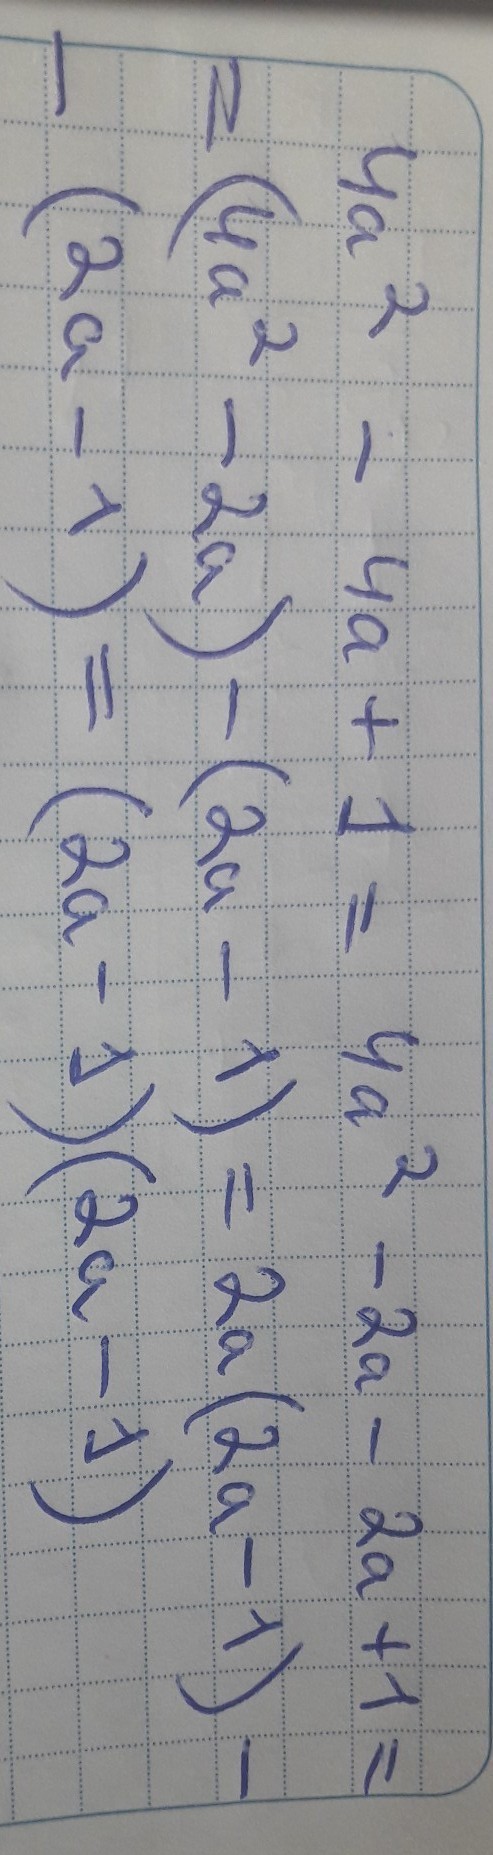 4a² - 4a + 1 = 4a² - 2a - 2a + 1 =
= (4a² - 2a) - (2a - 1) = 2a(2a - 1) -
- (2a - 1) = (2a - 1)(2a - 1)